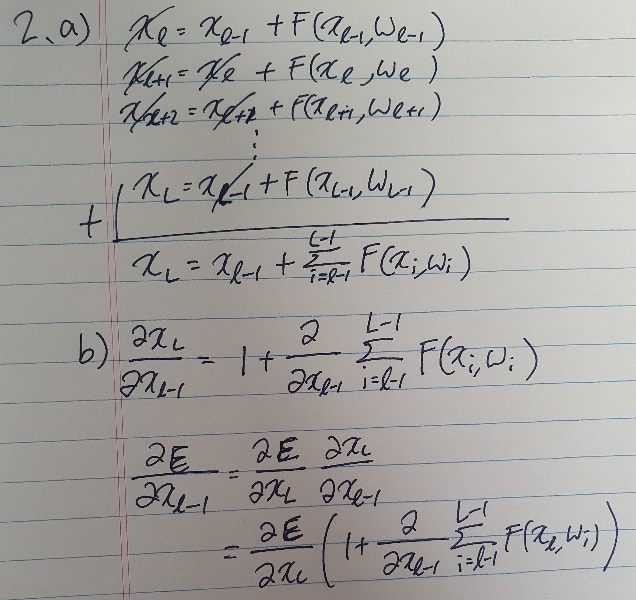 2. a) x_ℓ = x_{ℓ-1} + F(x_{ℓ-1}, w_{ℓ-1})
x_{ℓ+1} = x_ℓ + F(x_ℓ, w_ℓ)
x_{ℓ+2} = x_{ℓ+1} + F(x_{ℓ+1}, w_{ℓ+1})
⋮
x_L = x_{L-1} + F(x_{L-1}, w_{L-1})
+
x_L = x_{ℓ-1} + ∑_{i=ℓ-1}^{L-1} F(x_i, w_i)
b) ∂x_L/∂x_{ℓ-1} = 1 + ∂/∂x_{ℓ-1} ∑_{i=ℓ-1}^{L-1} F(x_i, w_i)
∂E/∂x_{ℓ-1} = ∂E/∂x_L ∂x_L/∂x_{ℓ-1}
= ∂E/∂x_L (1 + ∂/∂x_{ℓ-1} ∑_{i=ℓ-1}^{L-1} F(x_ℓ, w_i))